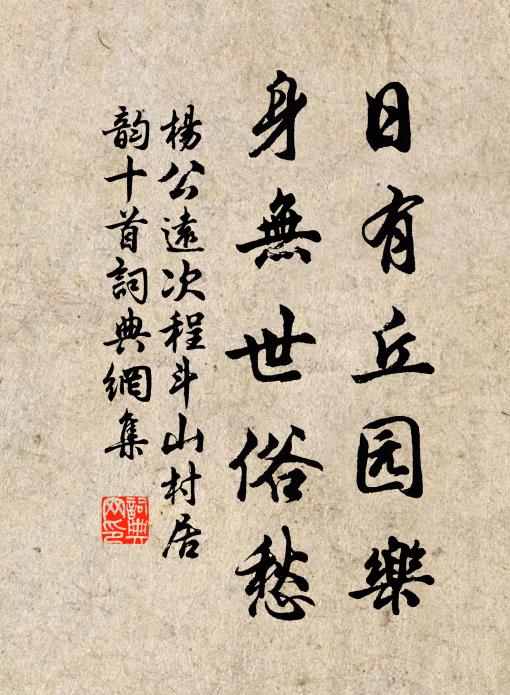 日有丘园樂
身無世俗愁
楊公遠次程斗山村居
韵十首詞典網集
詞典網印